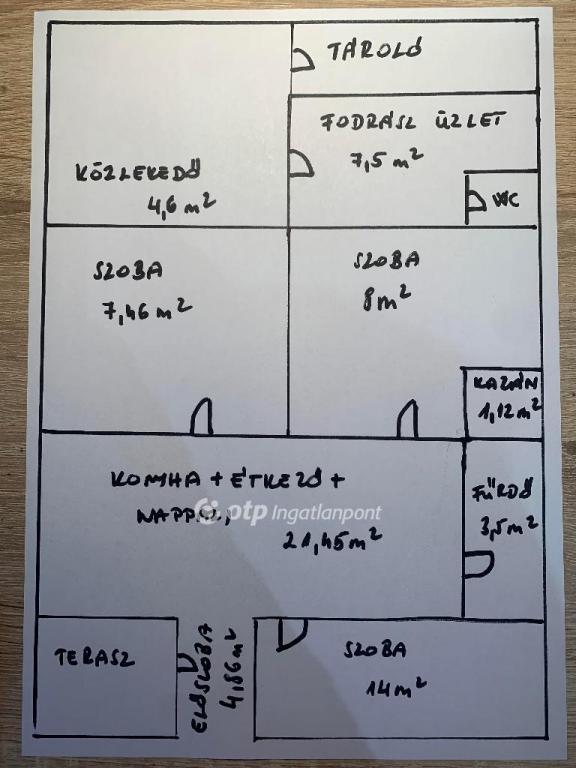 TÁROLÓ
FODRÁSZ ÜZLET
7,5 m²
KÖZLEKEDŐ
4,6 m²
WC
SZOBA
7,46 m²
SZOBA
8 m²
KAZÁN
1,12 m²
KONYHA + ÉTKEZŐ +
NAPPALI
21,45 m²
otp Ingatlanpont
FÜRDŐ
3,5 m²
TERASZ
ELŐSZOBA
4,86 m²
SZOBA
14 m²